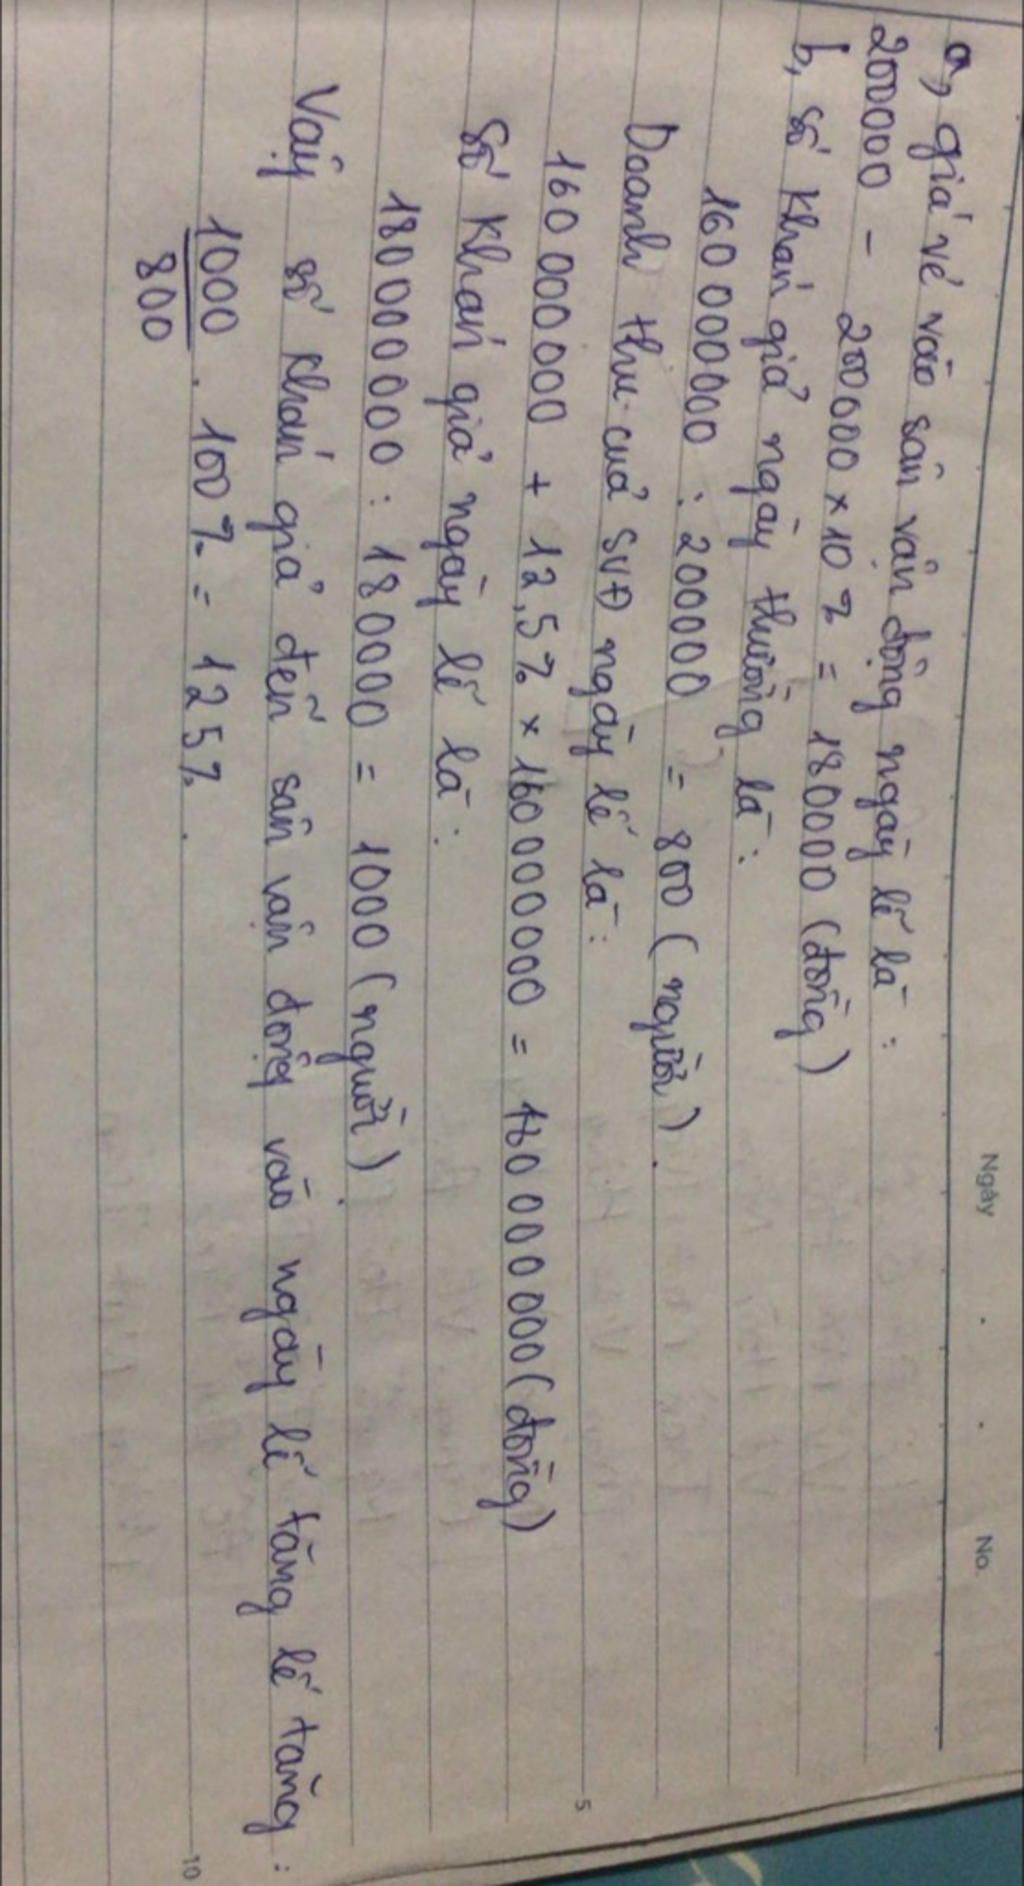 Ngày . . No.
a, giá vé vào sân vận động ngày lễ là :
200000 - 200000 × 10 % = 180000 (đồng)
b, số khán giả ngày thường là :
160 000000 : 200000 = 800 ( người ) .
Doanh thu của SVĐ ngày lễ là :
160 000 000 + 12,5% × 160 000 000 = 180 000 000 ( đồng )
5
Số khán giả ngày lễ là :
180 000 000 : 180000 = 1000 ( người ) .
Vậy số khán giả đến sân vận động vào ngày lễ tăng lễ tăng :
1000 . 100 % = 125% .
800
10